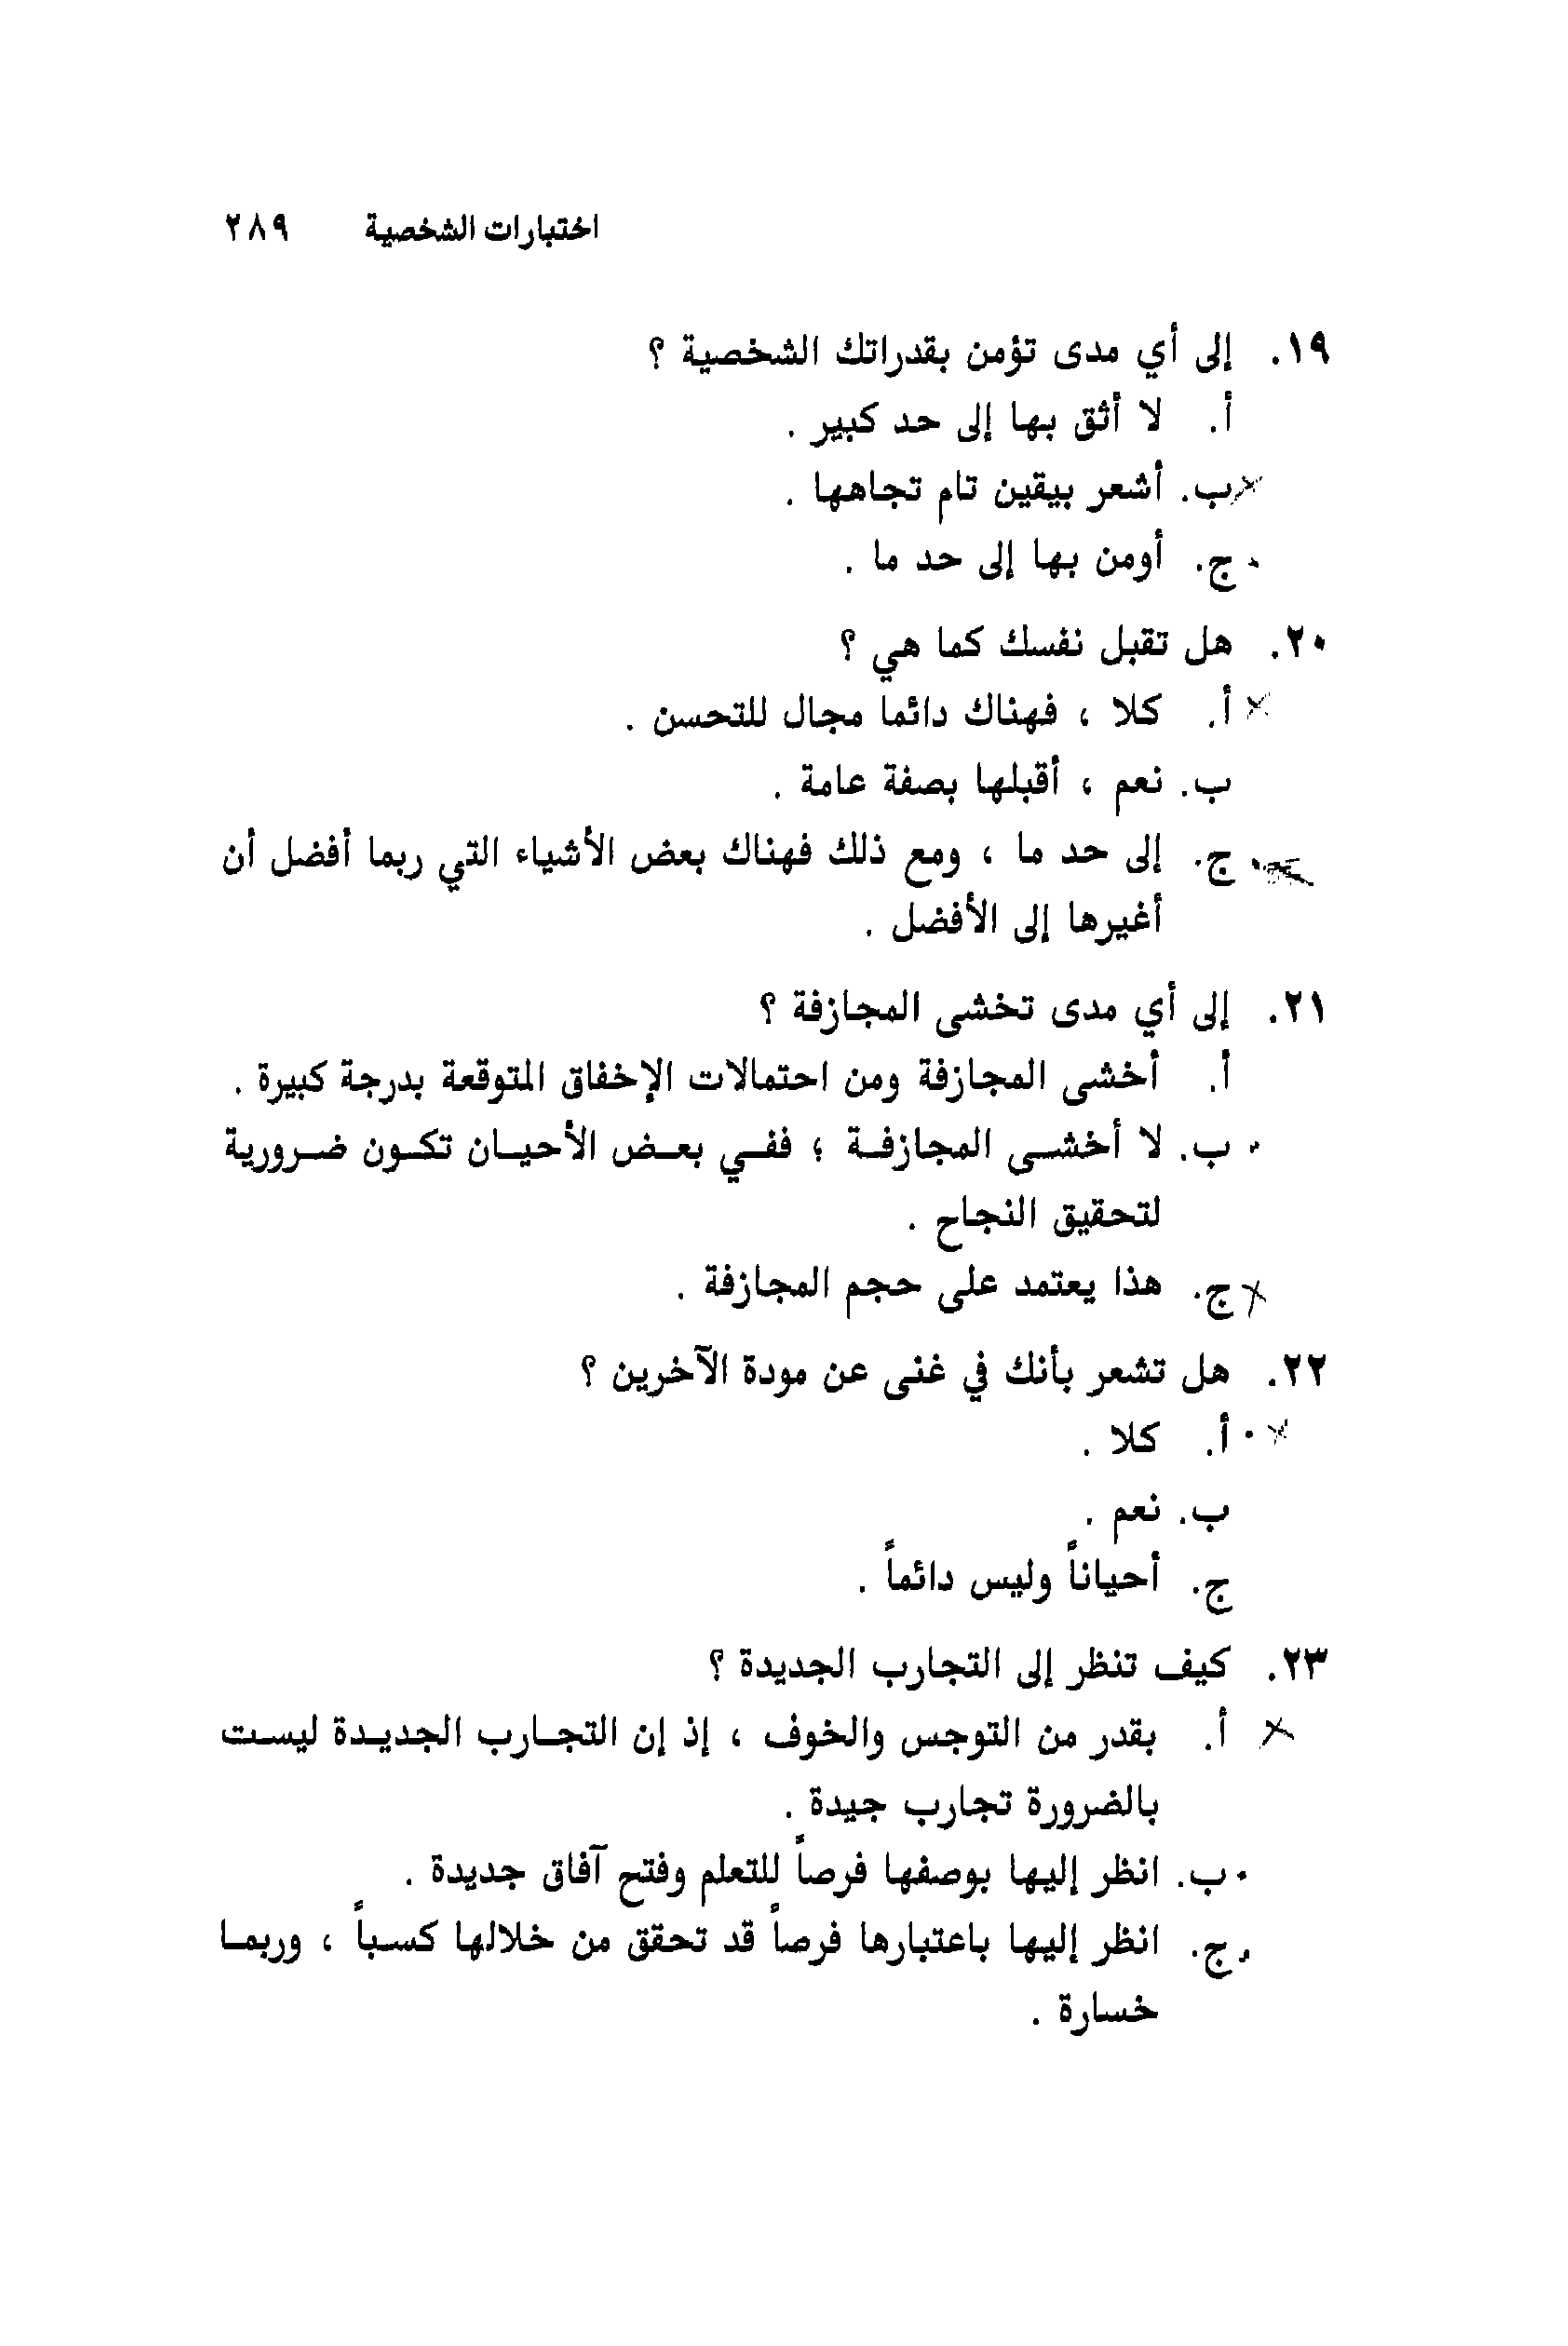 اختبارات الشخصية ٢٨٩
١٩. إلى أي مدى تؤمن بقدراتك الشخصية ؟
أ. لا أثق بها إلى حد كبير .
ب. أشعر بيقين تام تجاهها .
ج. أومن بها إلى حد ما .
٢٠. هل تقبل نفسك كما هي ؟
أ. كلا ، فهناك دائما مجال للتحسن .
ب. نعم ، أقبلها بصفة عامة .
ج. إلى حد ما ، ومع ذلك فهناك بعض الأشياء التي ربما أفضل أن
أغيرها إلى الأفضل .
٢١. إلى أي مدى تخشى المجازفة ؟
أ. أخشى المجازفة ومن احتمالات الإخفاق المتوقعة بدرجة كبيرة .
ب. لا أخشى المجازفة ؛ ففي بعض الأحيان تكون ضرورية
لتحقيق النجاح .
ج. هذا يعتمد على حجم المجازفة .
٢٢. هل تشعر بأنك في غنى عن مودة الآخرين ؟
أ. كلا .
ب. نعم .
ج. أحياناً وليس دائماً .
٢٣. كيف تنظر إلى التجارب الجديدة ؟
أ. بقدر من التوجس والخوف ، إذ إن التجارب الجديدة ليست
بالضرورة تجارب جيدة .
ب. انظر إليها بوصفها فرصاً للتعلم وفتح آفاق جديدة .
ج. انظر إليها باعتبارها فرصاً قد تحقق من خلالها كسباً ، وربما
خسارة .